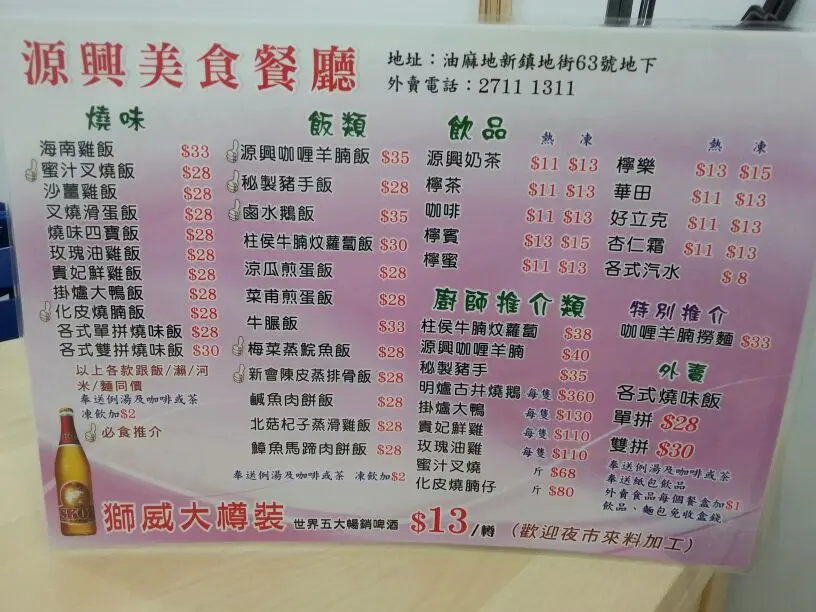 源興美食餐廳
地址：油麻地新鎮地街63號地下
外賣電話：2711 1311
燒味
海南雞飯 $33
蜜汁叉燒飯 $28
沙薑雞飯 $28
叉燒滑蛋飯 $28
燒味四寶飯 $28
玫瑰油雞飯 $28
貴妃鮮雞飯 $28
掛爐大鴨飯 $28
化皮燒腩飯 $28
各式單拼燒味飯 $28
各式雙拼燒味飯 $30
以上各款跟飯/瀨/河
米/麵同價
奉送例湯及咖啡或茶
凍飲加$2
必食推介
飯類
源興咖喱羊腩飯 $35
秘製豬手飯 $28
鹵水鵝飯 $35
柱侯牛腩炆蘿蔔飯 $30
涼瓜煎蛋飯 $28
菜甫煎蛋飯 $28
牛脤飯 $33
梅菜蒸鯇魚飯 $28
新會陳皮蒸排骨飯 $28
鹹魚肉餅飯 $28
北菇杞子蒸滑雞飯 $28
鱆魚馬蹄肉餅飯 $28
奉送例湯及咖啡或茶 凍飲加$2
飲品
熱 凍
源興奶茶 $11 $13
檸茶 $11 $13
咖啡 $11 $13
檸賓 $13 $15
檸蜜 $11 $13
熱 凍
檸樂 $13 $15
華田 $11 $13
好立克 $11 $13
杏仁霜 $11 $13
各式汽水 $8
廚師推介類
柱侯牛腩炆蘿蔔 $38
源興咖喱羊腩 $40
秘製豬手 $35
明爐古井燒鵝 每隻 $360
掛爐大鴨 每隻 $130
貴妃鮮雞 每隻 $110
玫瑰油雞 每隻 $110
蜜汁叉燒 斤 $68
化皮燒腩仔 斤 $80
特別推介
咖喱羊腩撈麵 $33
外賣
各式燒味飯
單拼 $28
雙拼 $30
奉送例湯及咖啡或茶
奉送紙包飲品
外賣食品每個餐盒加$1
飲品、麵包免收盒錢
獅威大樽裝 世界五大暢銷啤酒 $13/樽 (歡迎夜市來料加工)
SKOL